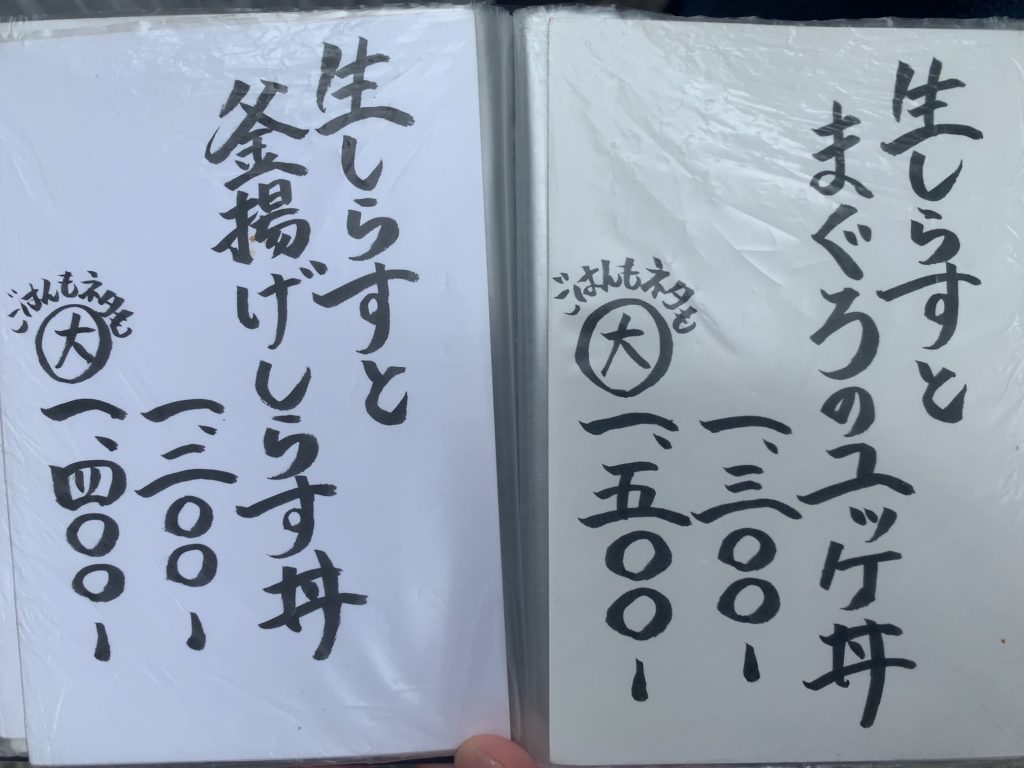 生しらすと
まぐろのユッケ丼
一、三〇〇-
ごはんもネタも
大
一、五〇〇-
生しらすと
釜揚げしらす丼
一、二〇〇-
ごはんもネタも
大
一、四〇〇-